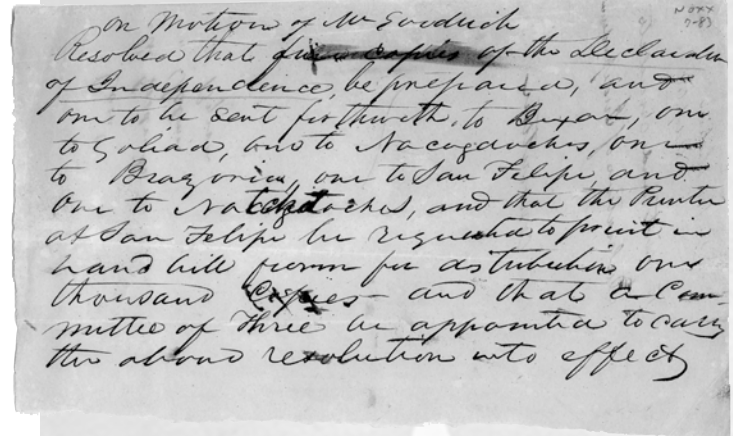 NOXX
7-83
on Motion of Mr Goodrich
Resolved that five copies of the Declaration
of Independence, be prepared, and
one to be sent forthwith, to Bexar, one
to Goliad, one to Nacogdoches, one
to Brazoria, one to San Felipe, and
one to Natchitoches, and that the Printer
at San Felipe be requested to print in
hand bill form for distribution one
thousand Copies - and that a Com-
mittee of three be appointed to carry
the above resolution into effect